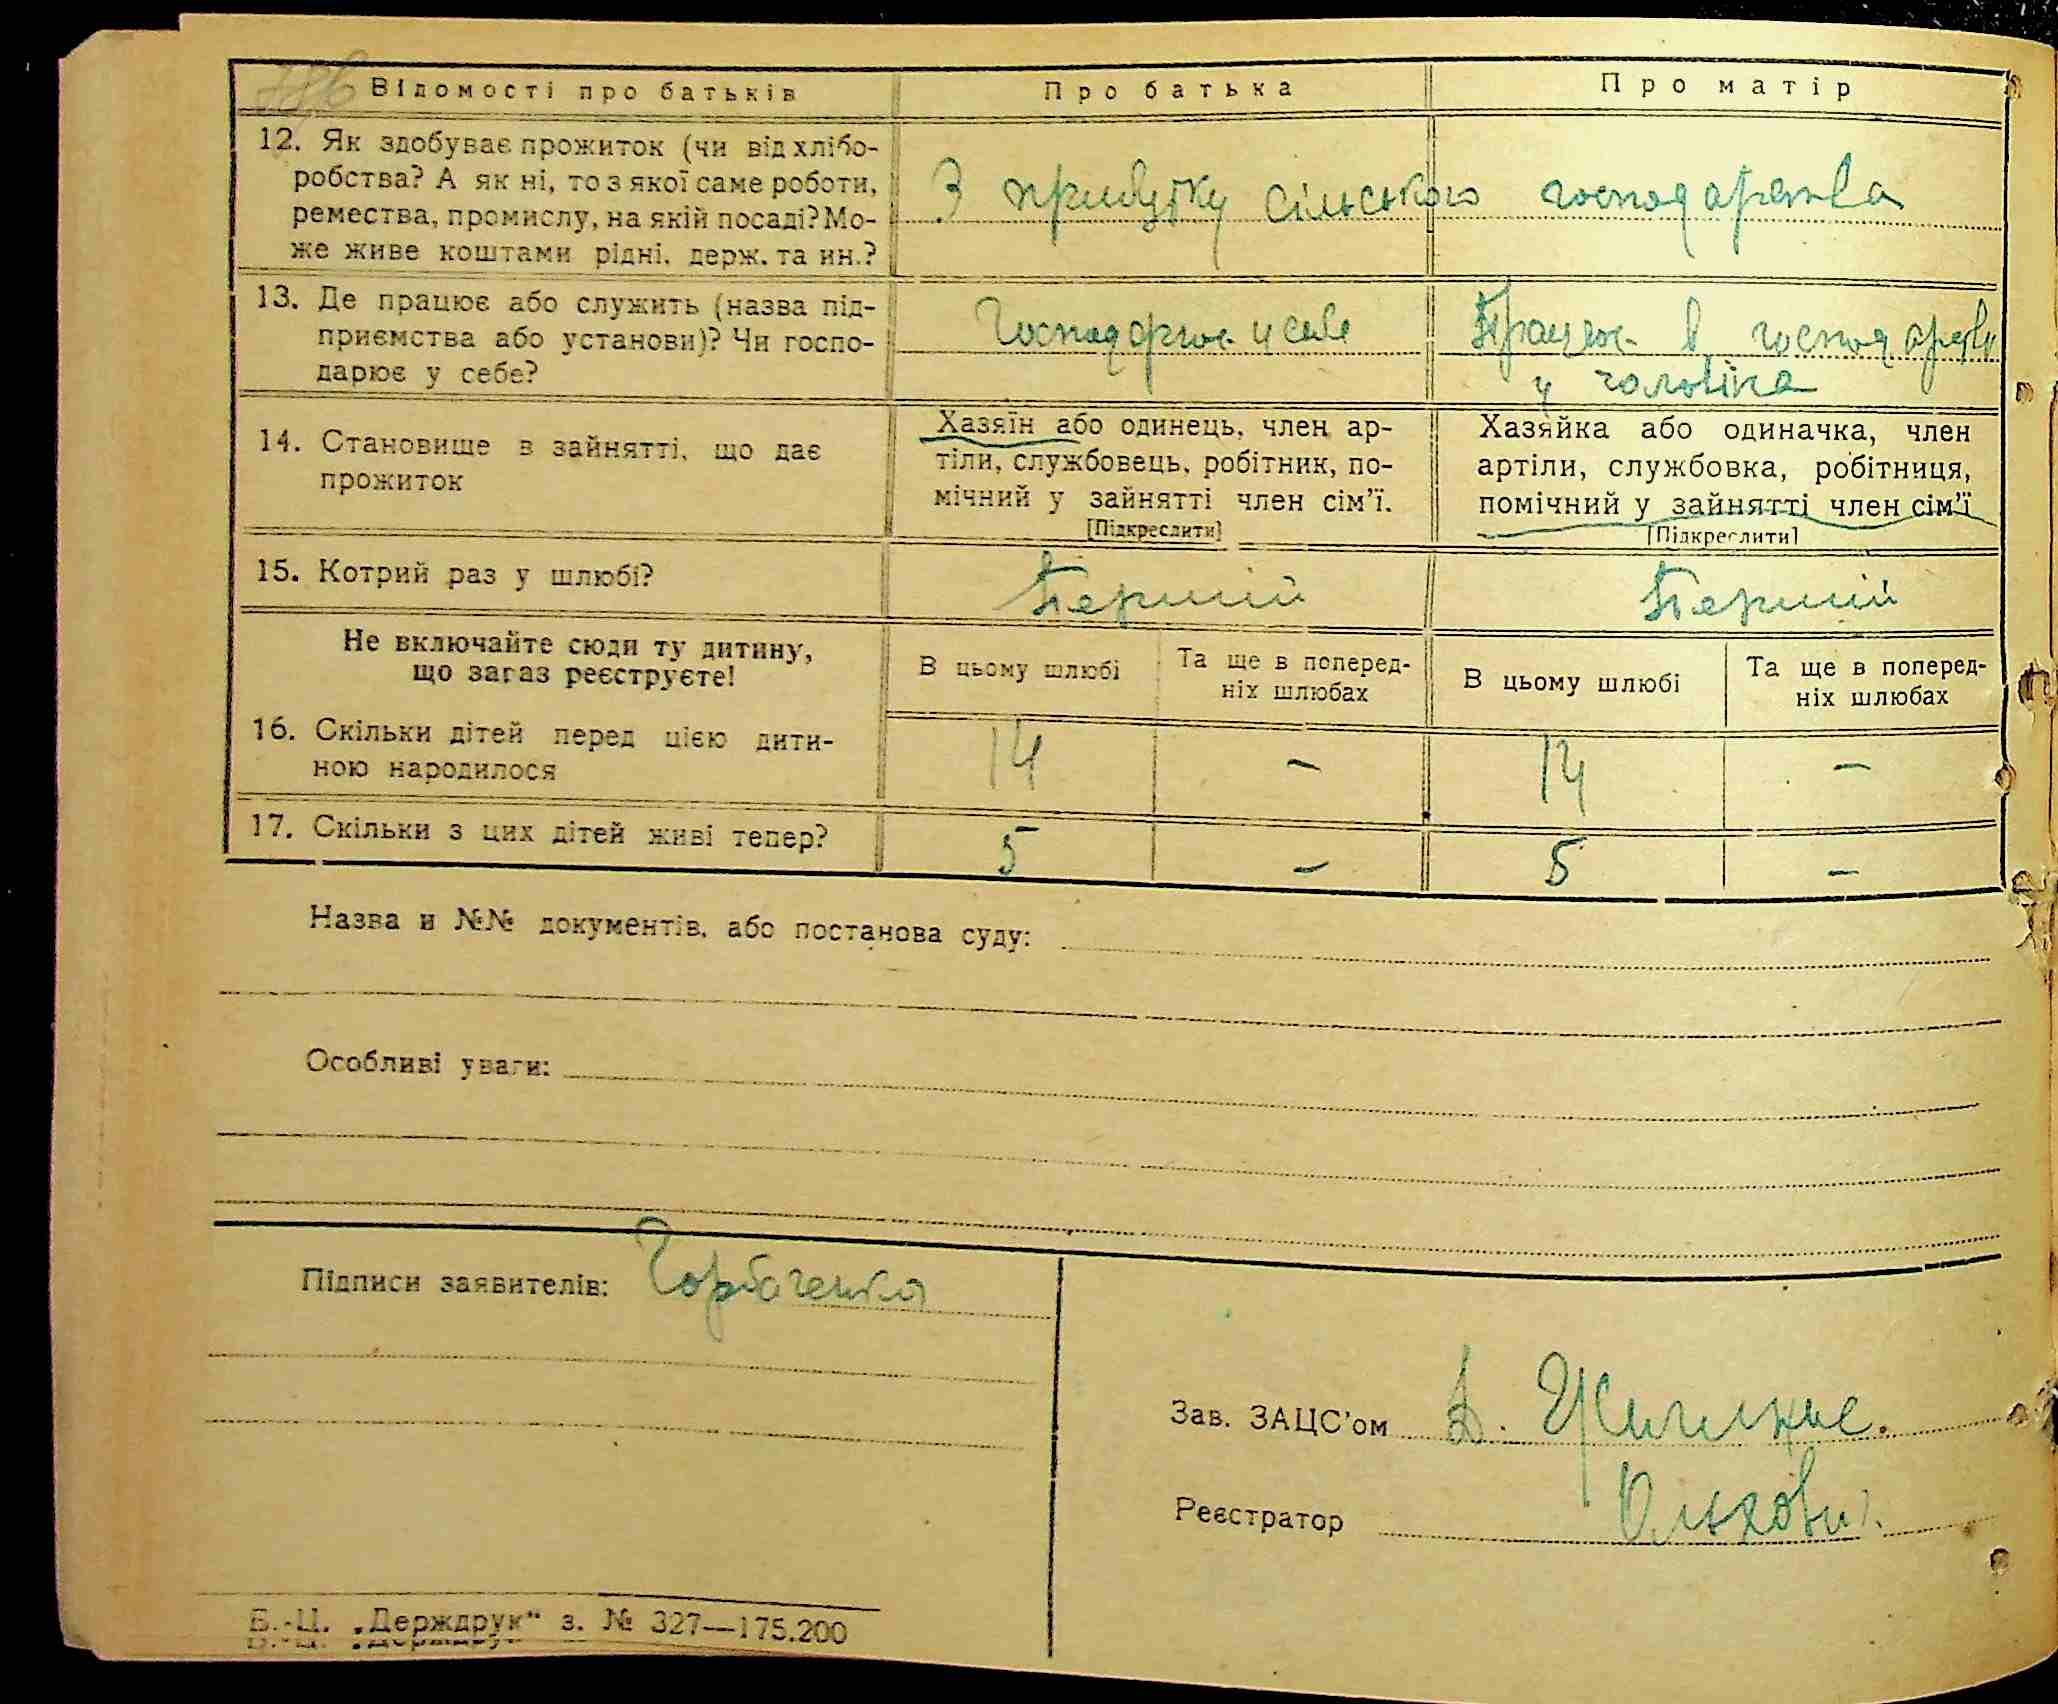 Відомості про батьків
Про батька
Про матір
12. Як здобуває прожиток (чи від хлібо-
робства? А як ні, то з якої саме роботи,
ремества, промислу, на якій посаді? Мо-
же живе коштами рідні, держ. та ин.?
З прибутку сільського господарства
13. Де працює або служить (назва під-
приємства або установи)? Чи госпо-
дарює у себе?
Господарює у себе
Працює в господарстві
у чоловіка
14. Становище в зайнятті, що дає
прожиток
Хазяїн або одинець, член ар-
тіли, службовець, робітник, по-
мічний у зайнятті член сім'ї.
[Підкреслити]
Хазяйка або одиначка, член
артіли, службовка, робітниця,
помічний у зайнятті член сім'ї
[Підкреслити]
15. Котрий раз у шлюбі?
Перший
Перший
Не включайте сюди ту дитину,
що зараз реєструєте!
В цьому шлюбі
Та ще в поперед-
ніх шлюбах
В цьому шлюбі
Та ще в поперед-
ніх шлюбах
16. Скільки дітей перед цією дити-
ною народилося
14
–
14
–
17. Скільки з цих дітей живі тепер?
5
–
5
–
Назва и №№ документів, або постанова суду:
Особливі уваги:
Підписи заявителів: Горбаченко
Зав. ЗАЦС'ом
Реєстратор
Б.-Ц. „Держдрук" з. № 327—175.200